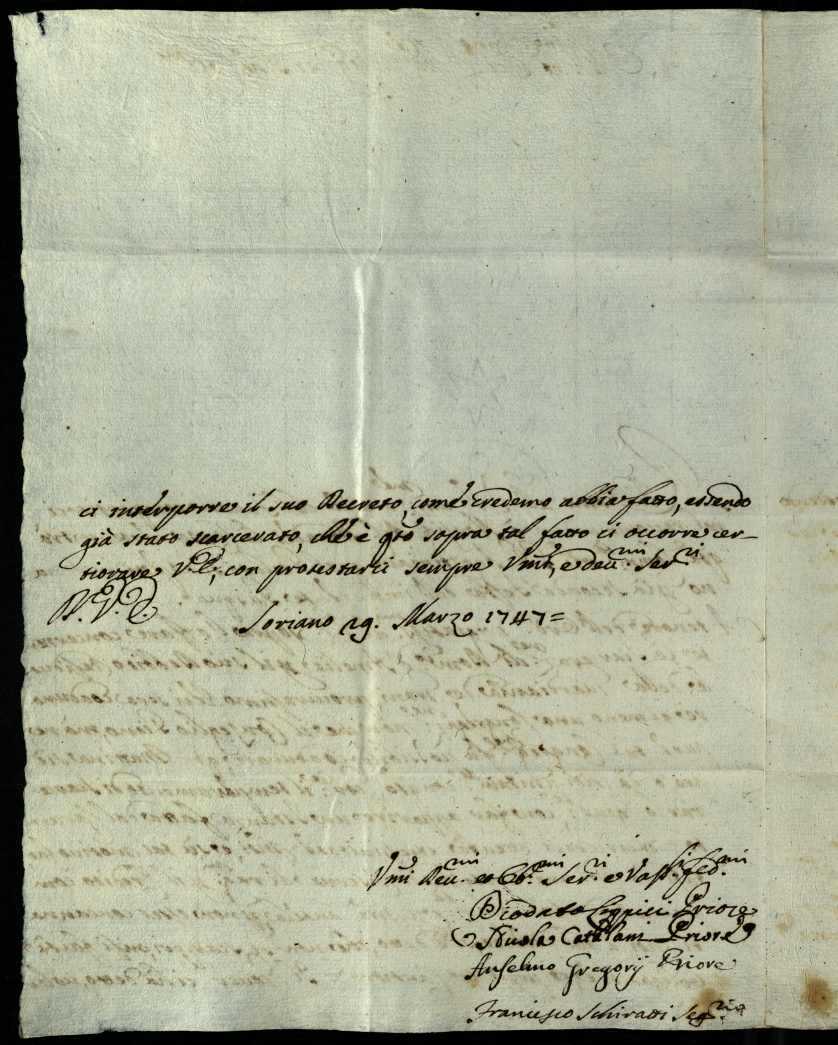 ci interporre il suo Decreto, come credemo abbia fatto, essendo
già stato scarcerato, che è qto sopra tal fatto ci occorre cer-
tiorare V.E., con protestarci sempre Vmi, e deumi Seri
D.V.E.
Soriano 29. Marzo 1747=
Vmi Deumi et Obmi Seri e Vassi fedmi
Diodato Priore
Nicola Catalani Priore
Anselmo Gregorij Priore
Francesco Schiratti Segrio